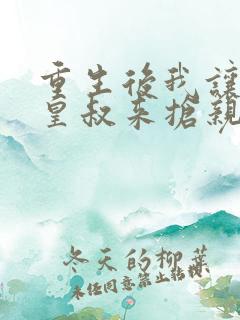 重生後我讓
皇叔來搶親
冬天的柳葉
未任同意禁止轉載